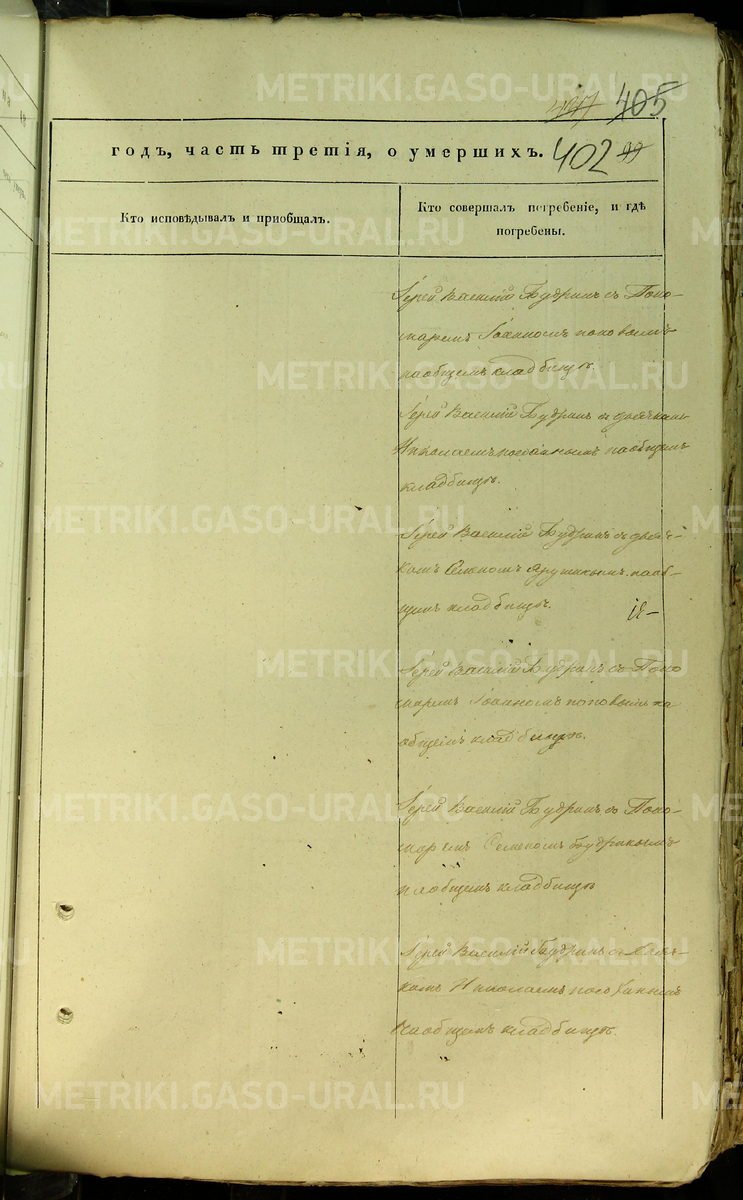 METRIKI.GASO-URAL.RU
405
годъ, часть третія, о умершихъ. 402 99
Кто исповѣдывалъ и приобщалъ.
Кто совершалъ погребеніе, и гдѣ
погребены.
Іерей Василій Будринъ съ Поно-
маремъ Іоанномъ поповымъ
наобщемъ кладбищѣ.
Іерей Василій Будринъ съ дьячкомъ
Николаемъ наобщемъ
кладбищѣ.
Іерей Василій Будринъ съ дьяч-
комъ наоб-
щемъ кладбищѣ.
Іерей Василій Будринъ съ Поно
маремъ Іоанномъ поповымъ на
общемъ кладбищѣ.
Іерей Василій Будринъ съ Поно-
маремъ Семеномъ Будринымъ
наобщемъ кладбищѣ
Іерей Василій Будринъ съ Дьяч-
комъ Николаемъ
наобщемъ кладбищѣ